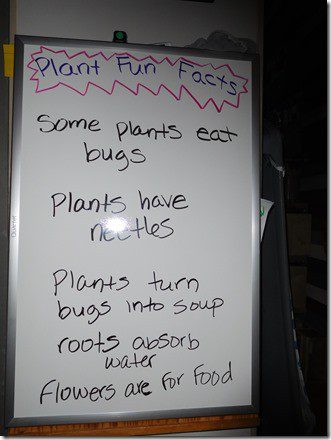 Plant Fun Facts
Some plants eat
bugs
Plants have
neetles
Plants turn
bugs into soup
roots absorb
water
flowers are for food